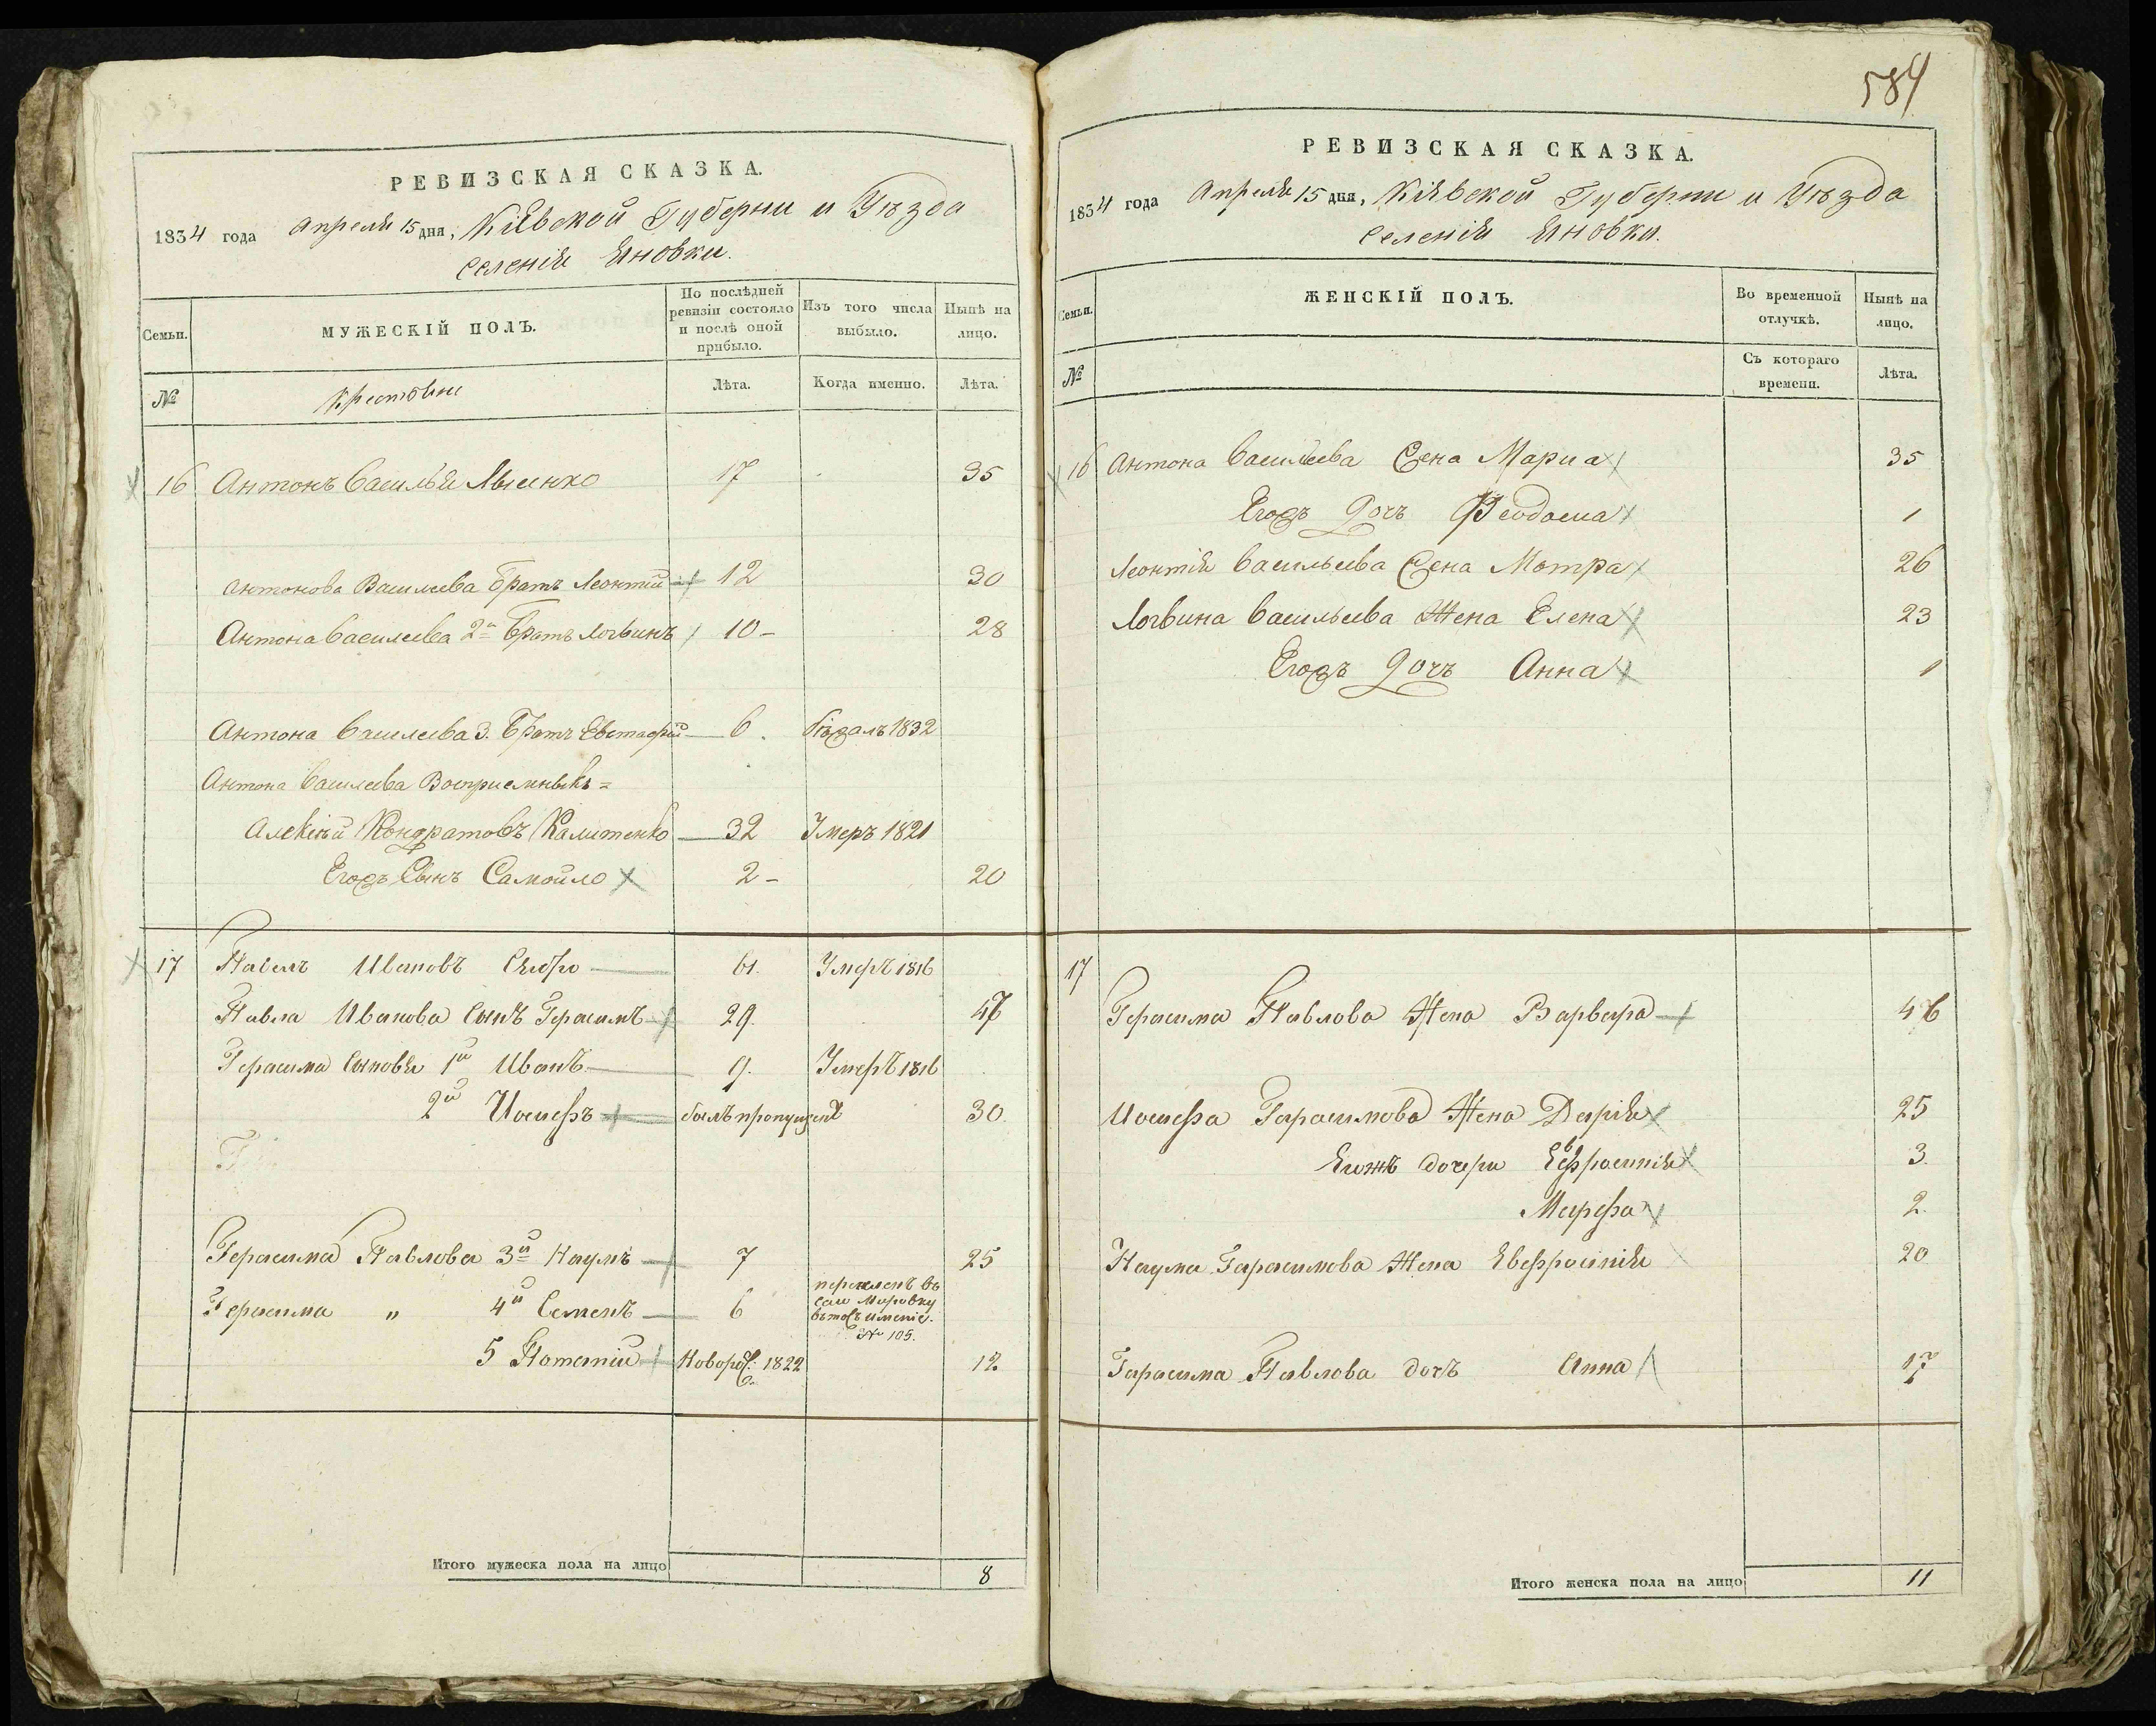 РЕВИЗСКАЯ СКАЗКА.
1834 года Апреля 15 дня, Кіевской Губерни и Уѣзда
Селенія Яновки.
Семьи.
МУЖЕСКІЙ ПОЛЪ.
По послѣдней ревизіи состояло и послѣ оной прибыло.
Изъ того числа выбыло.
Нынѣ на лицо.
№
Крестьяне
Лѣта.
Когда именно.
Лѣта.
16 Антонъ Васильевъ 17 35
Антонова Василиева Братъ Леонтій 12 30
Антона Василиева 2й Братъ Логвинъ 10 28
Антона Василиева 3. Братъ Евстафій 6. бѣжалъ 1832
Антона Василиева Восприемникъ =
Алексѣй Кондратовъ Калитенко 32 Умеръ 1821
Егожъ Сынъ Самойло 2 20
17 Павелъ Ивановъ 61. Умеръ 1816
Павла Иванова Сынъ Герасимъ 29. 47
Герасима Сыновья 1й Иванъ 9. Умеръ 1816
2й Иосифъ былъ пропущенъ 30.
Герасима Павлова 3й Наумъ 7 25
Герасима " 4й Семенъ 6
въ томъ имѣніе.
№ 105.
5 Потапій Новорож: 1822 12
Итого мужеска пола на лицо 8
584
РЕВИЗСКАЯ СКАЗКА.
1834 года Апреля 15 дня, Кіевской Губерни и Уѣзда
Селенія Яновки.
Семьи.
ЖЕНСКІЙ ПОЛЪ.
Во временной отлучкѣ.
Нынѣ на лицо.
№
Съ котораго времени.
Лѣта.
16 Антона Василиева Жена Мариа 35
Егожъ дочь Феодосиа 1
Леонтія Васильева Жена Мотра 26
Логвина Васильева Жена Елена 23
Егожъ дочь Анна 1
17
Герасима Павлова Жена Варвара 46
Иосифа Герасимова Жена Дарія 25
Еижъ дочери Евфросинія 3.
Марфа 2.
Наума Герасимова Жена Евфросинія 20
Герасима Павлова дочъ Анна 17
Итого женска пола на лицо 11